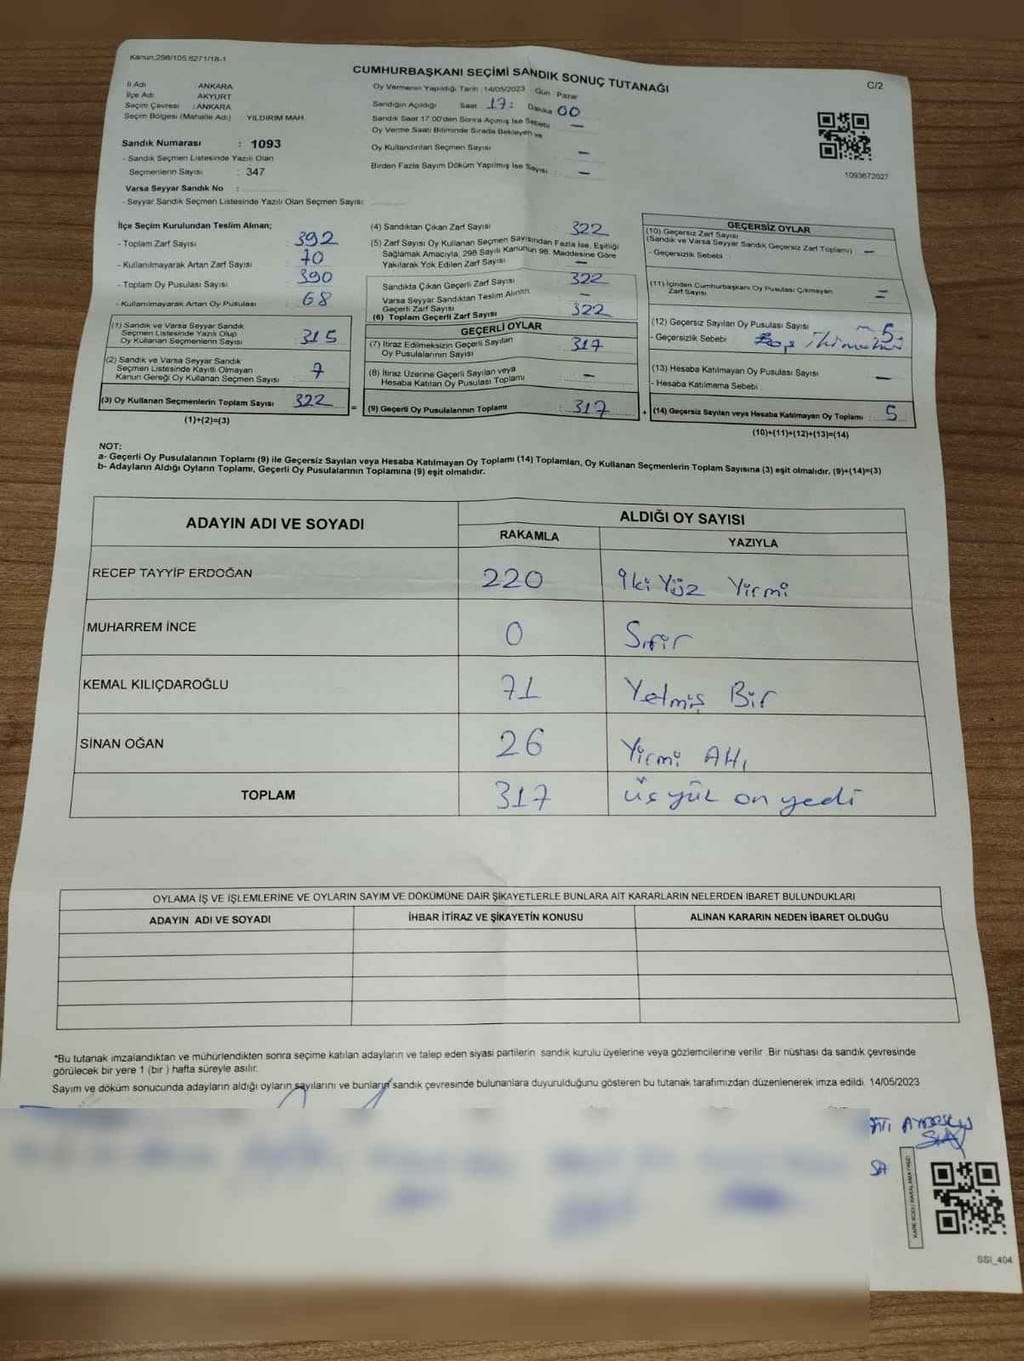 Kanun:298/105,6271/18-1
CUMHURBAŞKANI SEÇİMİ SANDIK SONUÇ TUTANAĞI
C/2
İl Adı ANKARA
İlçe Adı AKYURT
Seçim Çevresi : ANKARA
Seçim Bölgesi (Mahalle Adı) : YILDIRIM MAH.
Sandık Numarası : 1093
- Sandık Seçmen Listesinde Yazılı Olan
Seçmenlerin Sayısı : 347
Varsa Seyyar Sandık No :
- Seyyar Sandık Seçmen Listesinde Yazılı Olan Seçmen Sayısı:
Oy Vermenin Yapıldığı Tarih : 14/05/2023 Gün : Pazar
Sandığın Açıldığı Saat 17: Dakika 00
Sandık Saat 17:00'den Sonra Açılmış İse Sebebi —
Oy Verme Saati Bitiminde Sırada Bekleyen ve
Oy Kullandırılan Seçmen Sayısı —
Birden Fazla Sayım Döküm Yapılmış İse Sayısı —
1093672027
İlçe Seçim Kurulundan Teslim Alınan;
- Toplam Zarf Sayısı 392
- Kullanılmayarak Artan Zarf Sayısı 70
- Toplam Oy Pusulası Sayısı 390
- Kullanılmayarak Artan Oy Pusulası 68
(1) Sandık ve Varsa Seyyar Sandık
Seçmen Listesinde Yazılı Olup
Oy Kullanan Seçmenlerin Sayısı 315
(2) Sandık ve Varsa Seyyar Sandık
Seçmen Listesinde Kayıtlı Olmayan
Kanun Gereği Oy Kullanan Seçmen Sayısı 7
(3) Oy Kullanan Seçmenlerin Toplam Sayısı 322
(1)+(2)=(3)
(4) Sandıktan Çıkan Zarf Sayısı 322
(5) Zarf Sayısı Oy Kullanan Seçmen Sayısından Fazla İse, Eşitliği
Sağlamak Amacıyla, 298 Sayılı Kanunun 98. Maddesine Göre
Yakılarak Yok Edilen Zarf Sayısı —
Sandıkta Çıkan Geçerli Zarf Sayısı 322
Varsa Seyyar Sandıktan Teslim Alınan
Geçerli Zarf Sayısı —
(6) Toplam Geçerli Zarf Sayısı 322
GEÇERLİ OYLAR
(7) İtiraz Edilmeksizin Geçerli Sayılan
Oy Pusulalarının Sayısı 317
(8) İtiraz Üzerine Geçerli Sayılan veya
Hesaba Katılan Oy Pusulası Toplamı —
= (9) Geçerli Oy Pusulalarının Toplamı 317 +
GEÇERSİZ OYLAR
(10) Geçersiz Zarf Sayısı
(Sandık ve Varsa Seyyar Sandık Geçersiz Zarf Toplamı) —
- Geçersizlik Sebebi
(11) İçinden Cumhurbaşkanı Oy Pusulası Çıkmayan
Zarf Sayısı
(12) Geçersiz Sayılan Oy Pusulası Sayısı 5
- Geçersizlik Sebebi
(13) Hesaba Katılmayan Oy Pusulası Sayısı —
- Hesaba Katılmama Sebebi
(14) Geçersiz Sayılan veya Hesaba Katılmayan Oy Toplamı 5
(10)+(11)+(12)+(13)=(14)
NOT:
a- Geçerli Oy Pusulalarının Toplamı (9) ile Geçersiz Sayılan veya Hesaba Katılmayan Oy Toplamı (14) Toplamları, Oy Kullanan Seçmenlerin Toplam Sayısına (3) eşit olmalıdır. (9)+(14)=(3)
b- Adayların Aldığı Oyların Toplamı, Geçerli Oy Pusulalarının Toplamına (9) eşit olmalıdır.
ADAYIN ADI VE SOYADI
ALDIĞI OY SAYISI
RAKAMLA YAZIYLA
RECEP TAYYİP ERDOĞAN 220 iki Yüz Yirmi
MUHARREM İNCE 0 Sıfır
KEMAL KILIÇDAROĞLU 71 Yetmiş Bir
SİNAN OĞAN 26 Yirmi Altı
TOPLAM 317 üç yüz on yedi
OYLAMA İŞ VE İŞLEMLERİNE VE OYLARIN SAYIM VE DÖKÜMÜNE DAİR ŞİKAYETLERLE BUNLARA AİT KARARLARIN NELERDEN İBARET BULUNDUKLARI
ADAYIN ADI VE SOYADI İHBAR İTİRAZ VE ŞİKAYETİN KONUSU ALINAN KARARIN NEDEN İBARET OLDUĞU
*Bu tutanak imzalandıktan ve mühürlendikten sonra seçime katılan adayların ve talep eden siyasi partilerin sandık kurulu üyelerine veya gözlemcilerine verilir. Bir nüshası da sandık çevresinde
görülecek bir yere 1 (bir ) hafta süreyle asılır.
Sayım ve döküm sonucunda adayların aldığı oyların sayılarını ve bunların sandık çevresinde bulunanlara duyurulduğunu gösteren bu tutanak tarafımızdan düzenlenerek imza edildi. 14/05/2023
SSI_404